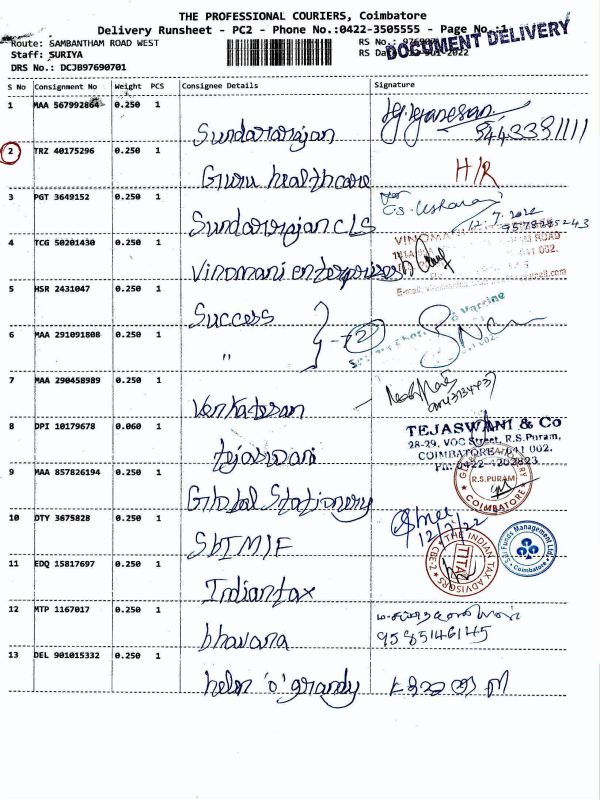 THE PROFESSIONAL COURIERS, Coimbatore
Delivery Runsheet - PC2 - Phone No.:0422-3505555 - Page No.:1
DOCUMENT DELIVERY
Route: SAMBANTHAM ROAD WEST
RS No.:
Staff: SURIYA
RS Date: 2022
DRS No.: DCJB97690701
S No Consignment No Weight PCS Consignee Details Signature
1 MAA 567992864 0.250 1 Sundararajan 9443391111
2 TRZ 40175296 0.250 1 Guru healthcare H/R
3 PGT 3649152 0.250 1 Sundararajan CLS
4 TCG 50201430 0.250 1 Vinomani enterprises
5 HSR 2431047 0.250 1 Success
6 MAA 291091808 0.250 1 " 2
7 MAA 290458989 0.250 1 Venkatesan
8 DPI 10179678 0.060 1 tejaswani
TEJASWANI & Co
28-29, VOC Street, R.S.Puram,
COIMBATORE - 641 002.
Ph: 0422-4202823
9 MAA 857826194 0.250 1 Global Stationery
R.S.PURAM
COIMBATORE
10 DTY 3675828 0.250 1 SBIMF 12/7/22
Sbi Funds Management Ltd.
Coimbatore
11 EDQ 15817697 0.250 1 Indiantax
THE INDIAN TAX ADVISORS
TITA
CBE-2
12 MTP 1167017 0.250 1 bhavana
9585146145
13 DEL 901015332 0.250 1 helen 'o' grandy